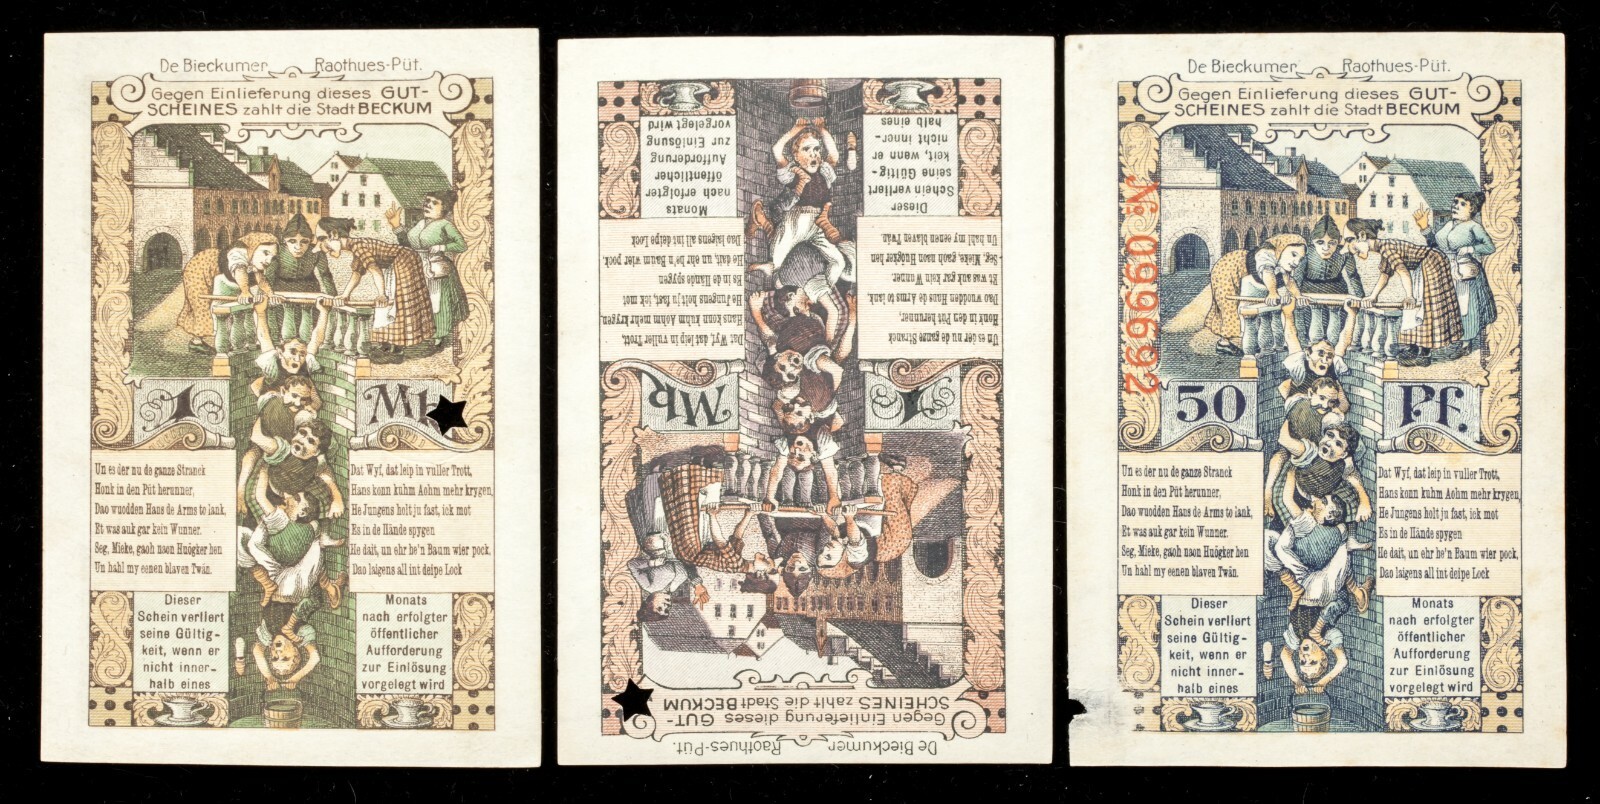 De Bieckumer Raothues-Püt.
Gegen Einlieferung dieses GUT-
SCHEINES zahlt die Stadt BECKUM
1 Mk
Un es der nu de ganze Stranck
Honk in den Püt herunner,
Dao wuodden Hans de Arms to lank,
Et was auk gar kein Wunner.
Seg, Mieke, gaoh naon Huögker hen
Un hahl my eenen blaven Twän.
Dat Wyf, dat leip in vuller Trott,
Hans konn kuhm Aohm mehr krygen,
He Jungens holt ju fast, ick mot
Es in de Hände spygen
He dait, un ehr he'n Baum wier pock,
Dao laigens all int deipe Lock
Dieser
Schein verliert
seine Gültig-
keit, wenn er
nicht inner-
halb eines
Monats
nach erfolgter
öffentlicher
Aufforderung
zur Einlösung
vorgelegt wird
De Bieckumer Raothues-Püt.
Gegen Einlieferung dieses GUT-
SCHEINES zahlt die Stadt BECKUM
1 Mk
Un es der nu de ganze Stranck
Honk in den Püt herunner,
Dao wuodden Hans de Arms to lank,
Et was auk gar kein Wunner.
Seg, Mieke, gaoh naon Huögker hen
Un hahl my eenen blaven Twän.
Dat Wyf, dat leip in vuller Trott,
Hans konn kuhm Aohm mehr krygen,
He Jungens holt ju fast, ick mot
Es in de Hände spygen
He dait, un ehr he'n Baum wier pock
Dao laigens all int deipe Lock
Dieser
Schein verliert
seine Gültig-
keit, wenn er
nicht inner-
halb eines
Monats
nach erfolgter
öffentlicher
Aufforderung
zur Einlösung
vorgelegt wird
De Bieckumer Raothues-Püt.
Gegen Einlieferung dieses GUT-
SCHEINES zahlt die Stadt BECKUM
№ 099692
50 Pf.
Un es der nu de ganze Stranck
Honk in den Püt herunner,
Dao wuodden Hans de Arms to lank,
Et was auk gar kein Wunner.
Seg, Mieke, gaoh naon Huögker hen
Un hahl my eenen blaven Twän.
Dat Wyf, dat leip in vuller Trott,
Hans konn kuhm Aohm mehr krygen,
He Jungens holt ju fast, ick mot
Es in de Hände spygen
He dait, un ehr he'n Baum wier pock,
Dao laigens all int deipe Lock
Dieser
Schein verliert
seine Gültig-
keit, wenn er
nicht inner-
halb eines
Monats
nach erfolgter
öffentlicher
Aufforderung
zur Einlösung
vorgelegt wird